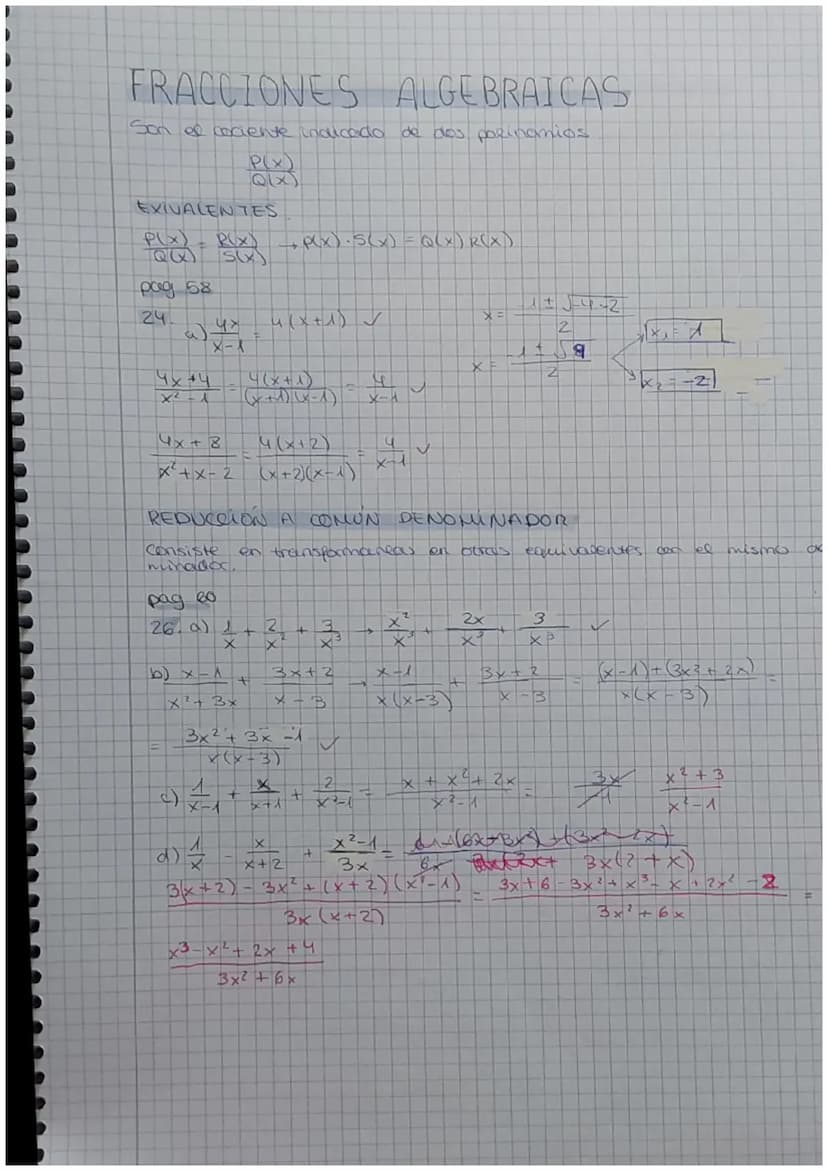 FRACCIONES ALGEBRAICAS
Son el cociente indicado de dos polinomios
P(x)/Q(x)
EXIVALENTES
P(x)/Q(x) = R(x)/S(x) → P(x) · S(x) = Q(x) R(x)
pag 58
24. a) 4x/x-1 = 4(x+1) ✓
x = -1 ± √-4-2 / 2
x = -1 ± √9 / 2
x₁ = 1
x₂ = -2
4x+4/x²-1 = 4(x+1)/(x+1)(x-1) = 4/x-1 ✓
4x+8/x²+x-2 = 4(x+2)/(x+2)(x-1) = 4/x-1 ✓
REDUCCIÓN A COMÚN DENOMINADOR
Consiste en transformarlas en otras equivalentes con el mismo
minador.
pag 60
26. a) 1/x + 2/x² + 3/x³ → x²/x³ + 2x/x³ + 3/x³ ✓
b) x-1/x²+3x + 3x+2/x-3 → x-1/x(x-3) + 3x+2/x-3 = (x-1)+(3x²+2x)/x(x-3) =
= 3x²+3x-1/x(x-3) ✓
c) 1/x-1 + x/x+1 + 2/x²-1 = x+x²+2x/x²-1 = 3x/-1 x²+3/x²-1
d) 1/x - x/x+2 + x²-1/3x = 3x(2+x)
3(x+2)-3x²+(x+2)(x²-1)/3x(x+2) = 3x+6-3x²+x³-x+2x²-2/3x²+6x =
x³-x²+2x+4/3x²+6x